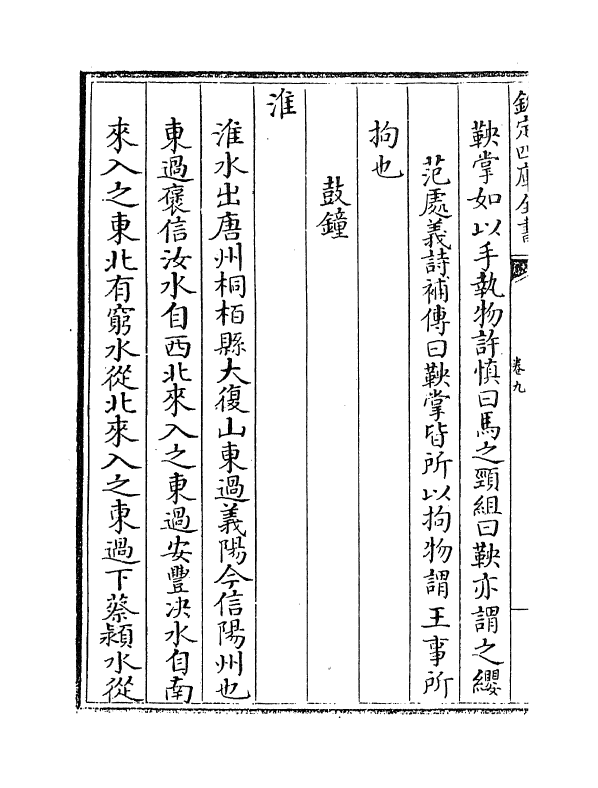 欽定四庫全書
卷九
鞅掌如以手執物許慎曰馬之頸組曰鞅亦謂之纓
范處義詩補傳曰鞅掌皆所以拘物謂王事所
拘也
鼓鐘
淮
淮水出唐州桐栢縣大復山東過義陽今信陽州也
東過褒信汝水自西北來入之東過安豐决水自南
來入之東北有窮水從北來入之東過下蔡潁水從